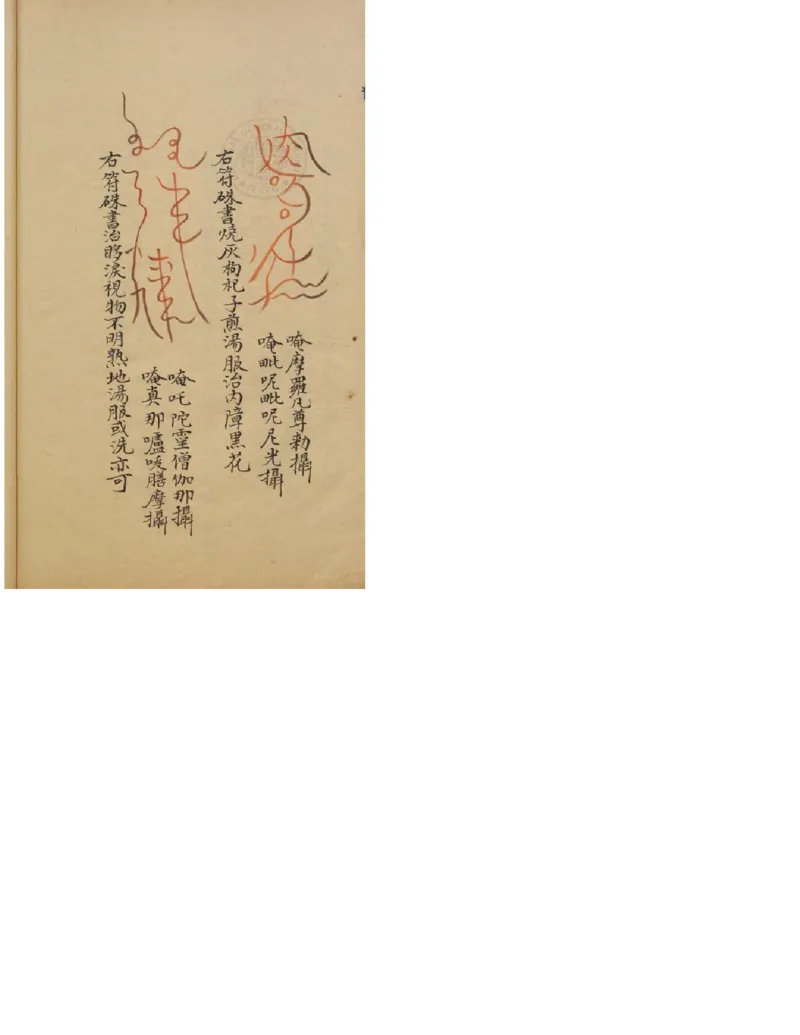 唵摩羅凡尊勅攝
唵毗呢毗呢尼光攝
右符硃書燒灰枸杞子煎湯服治內障黑花
唵吒陀靈僧伽那攝
唵真那嚧吱膳摩攝
右符硃書治眵淚視物不明熟地湯服或洗亦可